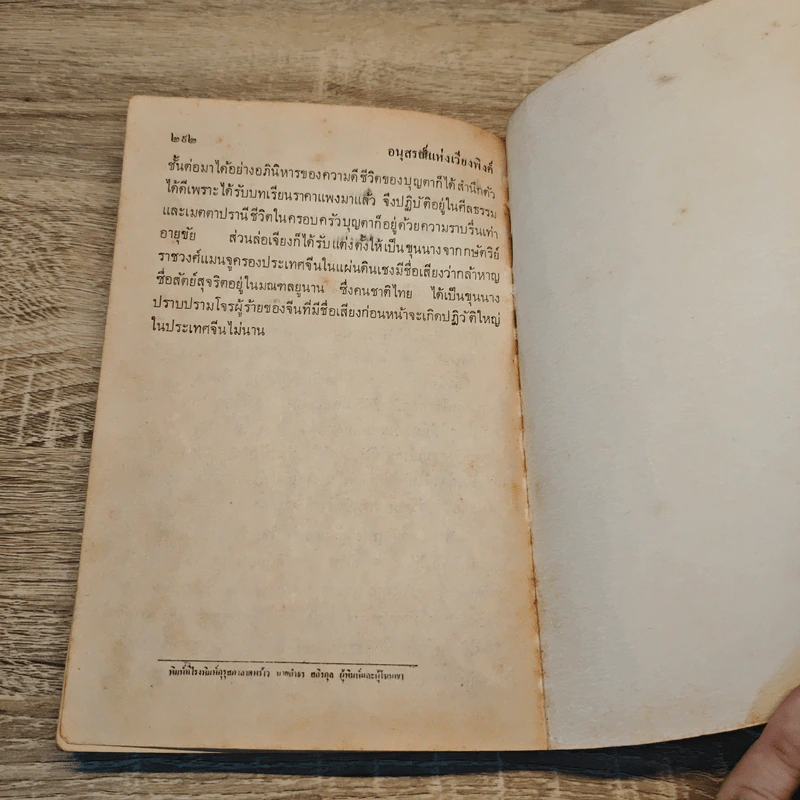 ๒๙๒
อนุสรณ์แห่งเวียงพิงค์
ชั้นต่อมาได้อย่างอภินิหารของความดีชีวิตของบุญตาก็ได้สำนึกตัว
ได้ดีเพราะได้รับบทเรียนราคาแพงมาแล้ว จึงปฏิบัติอยู่ในศีลธรรม
และเมตตาปรานีชีวิตในครอบครัวบุญตาก็อยู่ด้วยความราบรื่นเท่า
อายุขัย ส่วนล่อเจียงก็ได้รับแต่งตั้งให้เป็นขุนนางจากกษัตริย์
ราชวงศ์แมนจูครองประเทศจีนในแผ่นดินเชงมีชื่อเสียงว่ากล้าหาญ
ซื่อสัตย์สุจริตอยู่ในมณฑลยูนาน ซึ่งคนชาติไทย ได้เป็นขุนนาง
ปราบปรามโจรผู้ร้ายของจีนที่มีชื่อเสียงก่อนหน้าจะเกิดปฏิวัติใหญ่
ในประเทศจีนไม่นาน
พิมพ์ที่โรงพิมพ์คุรุสภาลาดพร้าว นายกำธร สถิรกุล ผู้พิมพ์และผู้โฆษณา